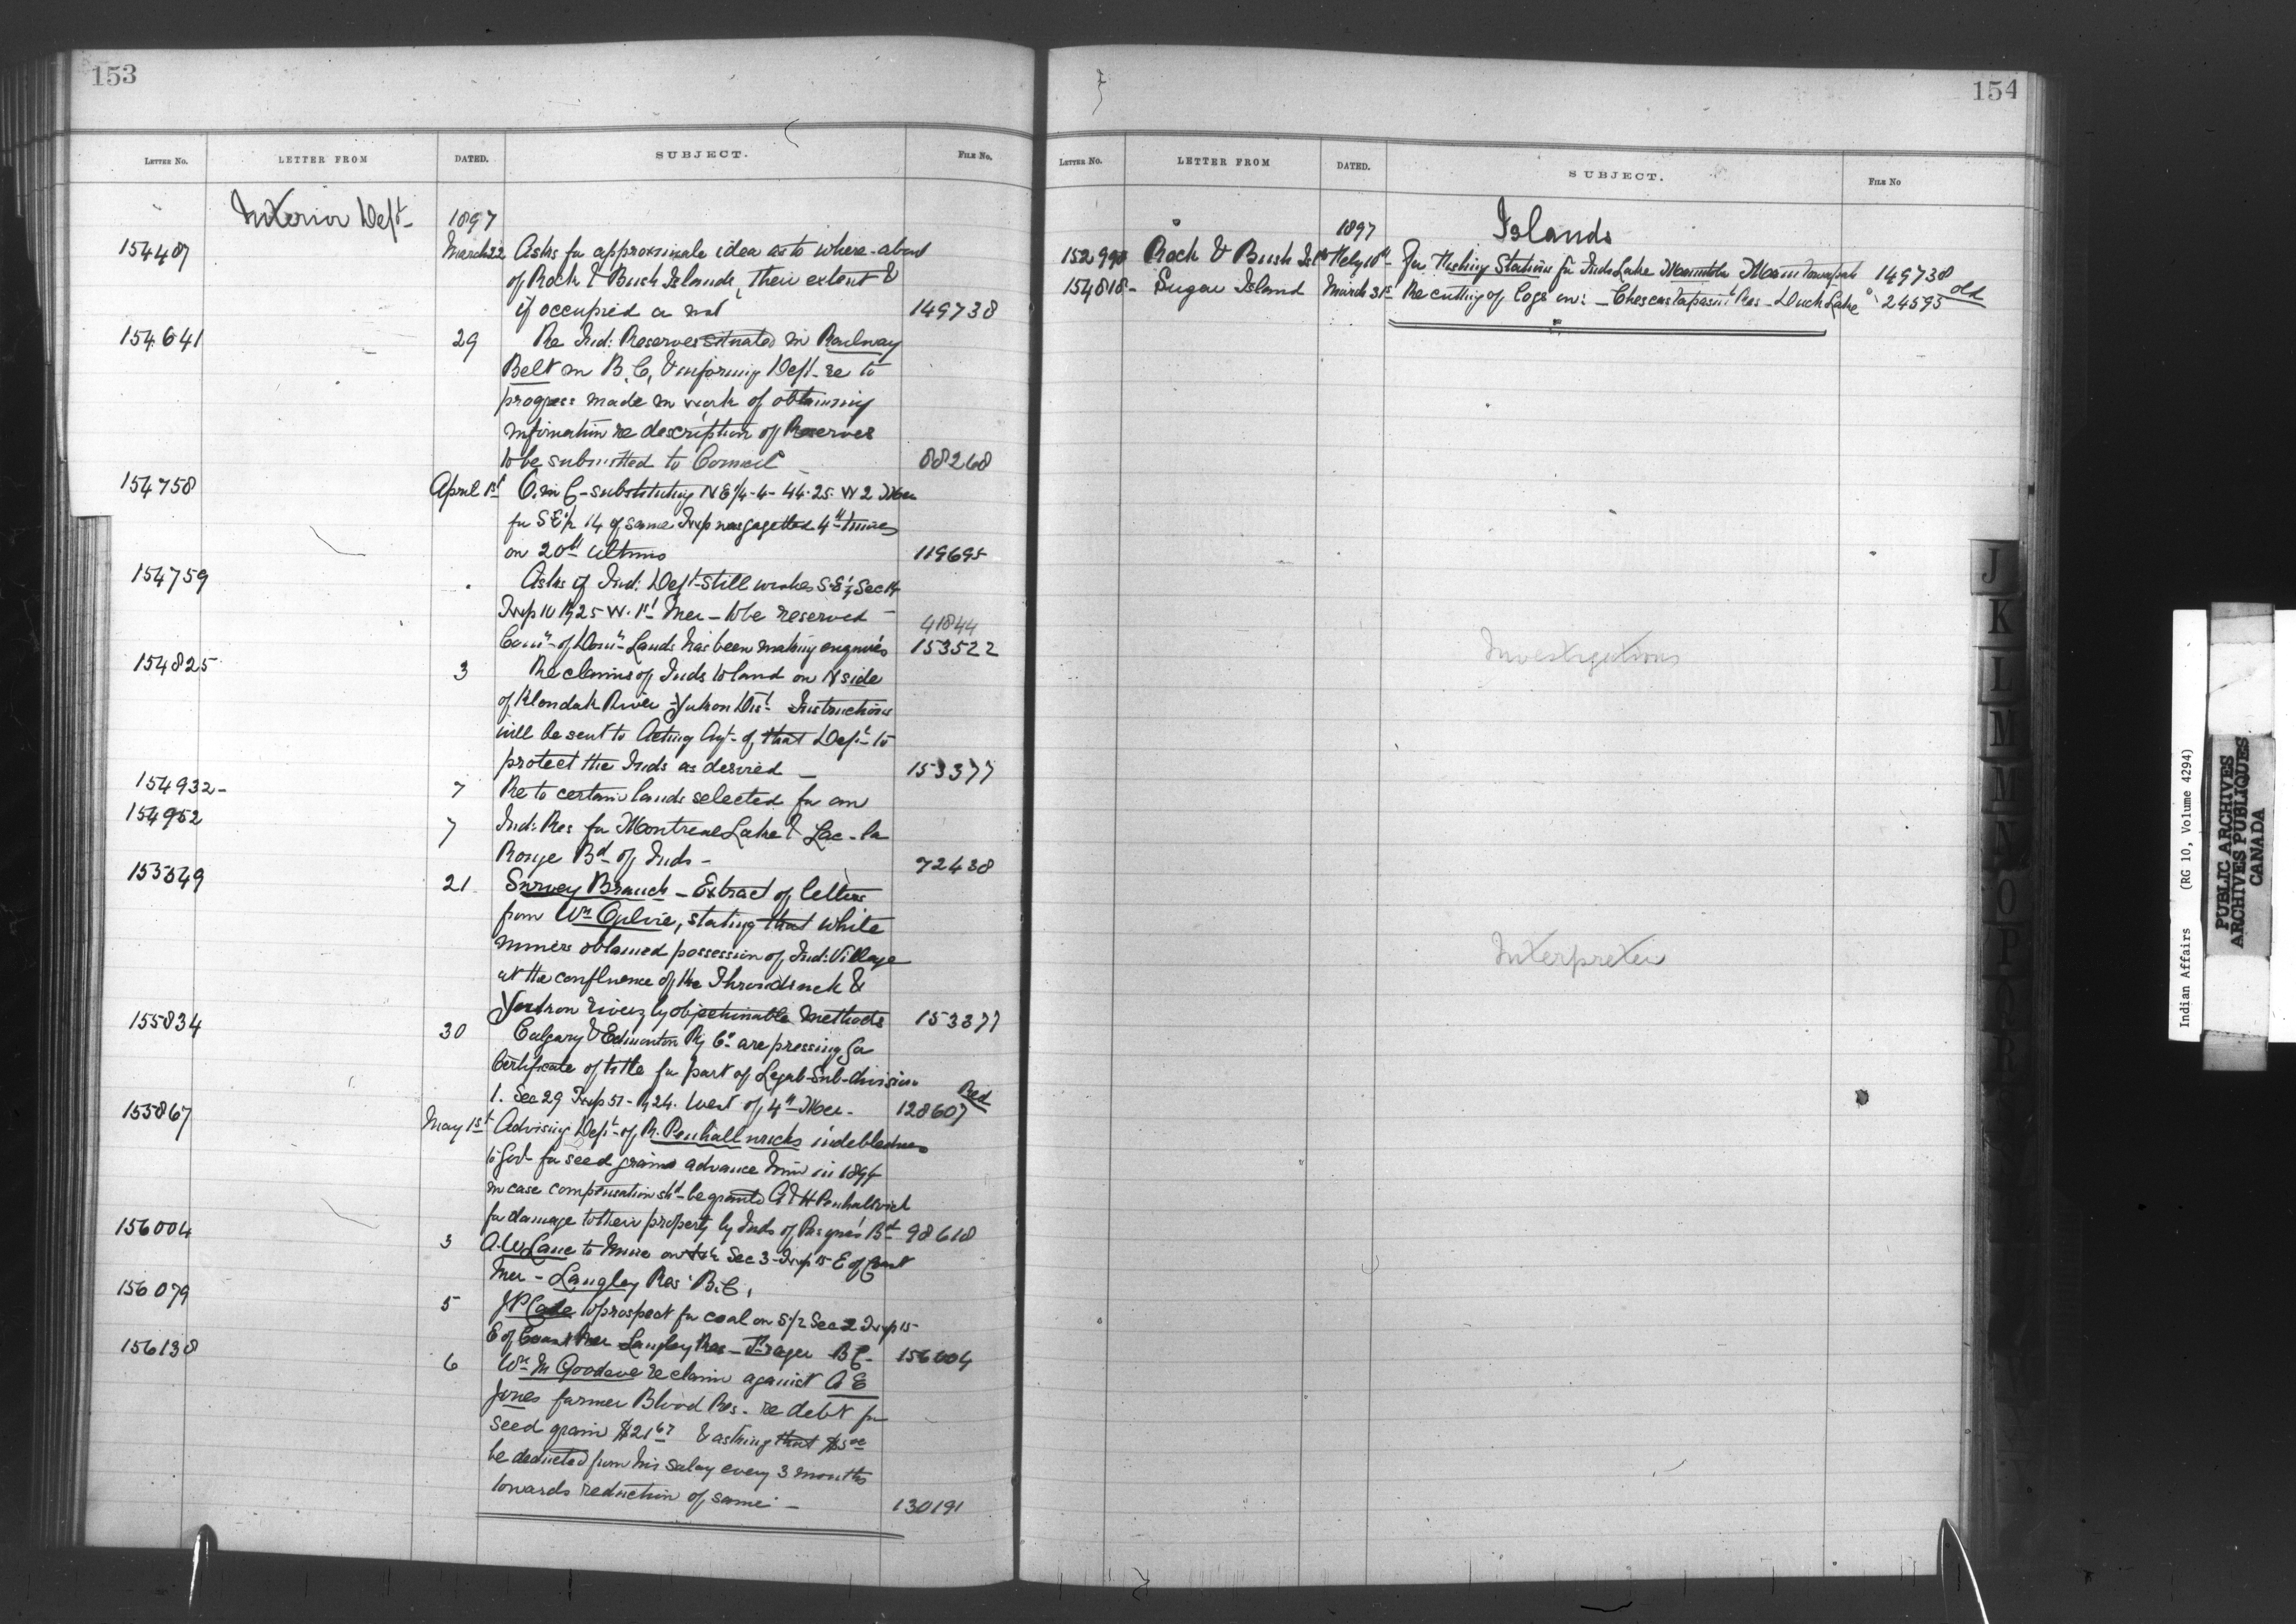 153
LETTER No. LETTER FROM DATED. SUBJECT. FILE No.
Interior Dept 1897
154487 March 22 Asks for approximate idea as to where-about
of Rock & Bush Islands, their extent &
if occupied or not 149738
154641 29 Re Ind: Reserves situated in Railway
Belt in B.C, & informing Dept re to
progress made in work of obtaining
information re description of Reserves
to be submitted to Council 88268
154758 April 1st O. in C - substituting NE 1/4 - 4 - 44 - 25 - W 2 Mer
for S E 1/4 14 of same Twp was gazetted 4th time
on 20th ultimo 119695
154759 Asks if Ind: Dept still wishes S.E 1/4 Sec 14
Twp 10 Rg 25 W. 1st Mer - to be reserved 41844
Comr of Domn Lands has been making enquiries 153522
154825 3 Re claims of Inds to land on N side
of Klondak River Yukon Dist Instructions
will be sent to Acting Agt of that Dept to
protect the Inds as desired 153377
154932 - 7 Re to certain lands selected for an
154952 7 Ind: Res for Montreal Lake & Lac-la
Ronge Bd of Inds - 72438
155549 21 Survey Branch - Extract of letters
from Wm Ogilvie, stating that white
miners obtained possession of Ind: Village
at the confluence of the &
Yukon rivers by objectionable methods 153377
155834 30 Calgary & Edmonton Ry Co are pressing for
Certificate of title for part of Legal Sub-division
1. Sec 29 Twp 51 - Rg 24. West of 4th Mer - 128607 Red
155867 May 1st Advising Dept of R. Penhallwricks indebtedness
to Govt for seed grain advance him in 1894
in case compensation shd be granted A & H Penhallwick
for damage to their property by Inds of Pasquas Bd 98618
156004 3 A. W Lane to mine on Sec 3 - Twp 15 E of Coast
Mer - Langley Res B.C,
156079 5 J P Cade to prospect for coal on S/2 Sec 2 Twp 15
E of Coast Mer Langley Res - B C - 156004
156138 6 Wm M Goodeve re claim against A E
Jones farmer Blood Res - re debt for
seed grain $21 67 & asking that $5 00
be deducted from his salary every 3 months
towards reduction of same - 130191
154
LETTER No. LETTER FROM DATED. SUBJECT. FILE No
1897 Islands
152998 Rock & Bush Isl Feby 10th For Fishing Station for Inds Lake Manitoba 149738
154818 - Sugar Island March 31st Re cutting of logs on: - Res - Duck Lake 24595 old
Investigations
Interpreter
J
K
L
M
M
N
O
P
Q
R
Indian Affairs (RG 10, Volume 4294)
PUBLIC ARCHIVES
ARCHIVES PUBLIQUES
CANADA